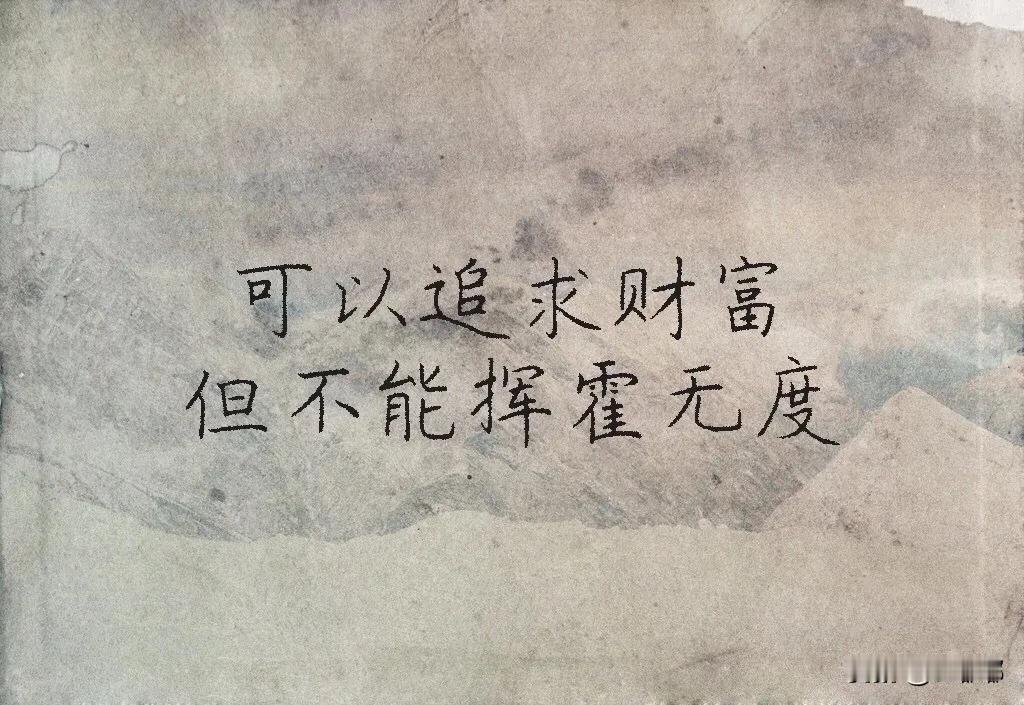 可以追求财富
但不能挥霍无度